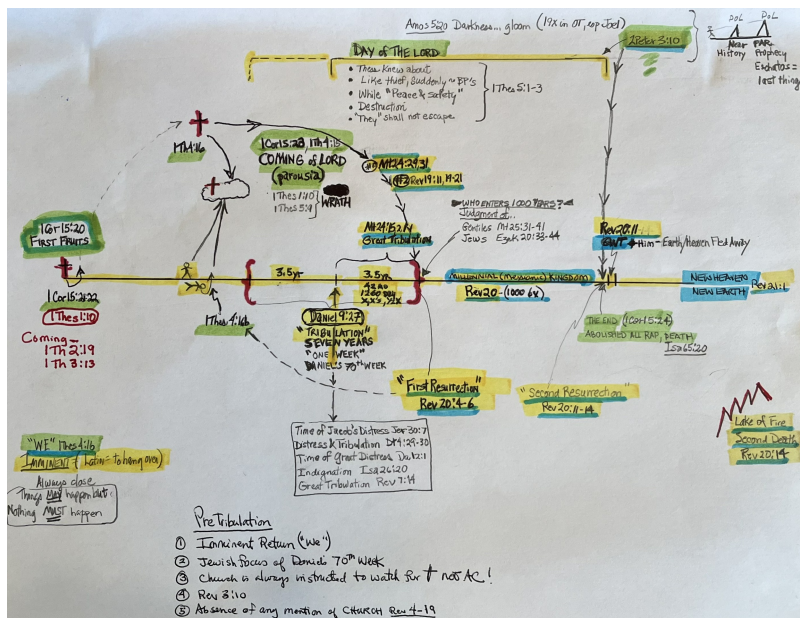 Amos 5:20 Darkness... gloom (19x in OT, esp Joel)
2 Peter 3:10
DOL DOL
Near FAR
History Prophecy
Eschatos =
last thing
DAY OF THE LORD
• These Knew about
• Like thief, Suddenly ~ BP's
• While "Peace & Safety"
• Destruction
• "They" shall not escape
1 Thes 5:1-3
1Th 4:16
1 Cor 15:23, 1Th 4:15
COMING of LORD
(parousia)
1 Thes 1:10
1 Thes 5:9
WRATH
#1 Mt 24:29,31
#2 Rev 19:11, 19-21
WHO ENTERS 1000 YEARS?
Judgment of...
Gentiles Mt 25:31-41
Jews Ezek 20:33-44
1 Cor 15:20
FIRST FRUITS
Great Tribulation
Rev 20:11
GWT Him - Earth/Heaven Fled Away
3.5 yr.
3.5 yr.
42 mo
1260 day
MILLENNIAL (Messianic) KINGDOM
Rev 20 - (1000 6x)
NEW HEAVEN
NEW EARTH
Rev 21:1
1 Cor 15:21,22
1 Thes 1:10
Coming
1 Th 2:19
1 Th 3:13
1 Thes 4:16
Daniel 9:27
"TRIBULATION"
SEVEN YEARS
"ONE WEEK"
DANIEL'S 70th WEEK
THE END (1 Cor 15:24)
ABOLISHED ALL RAP, DEATH
Isa 65:20
"First Resurrection"
Rev 20:4-6
"Second Resurrection"
Rev 20:11-14
Lake of Fire
Second Death
Rev 20:14
Time of Jacob's Distress Jer 30:7
Distress & Tribulation Dt 4:29-30
Time of Great Distress Da 12:1
Indignation Isa 26:20
Great Tribulation Rev 7:14
"WE" Thes 4:16
IMMINENT (Latin = to hang over)
Always close
Things MAY happen but
Nothing MUST happen
PreTribulation
① Imminent Return ("We")
② Jewish focus of Daniel's 70th Week
③ Church is always instructed to watch for † not AC!
④ Rev 3:10
⑤ Absence of any mention of CHURCH Rev 4-19